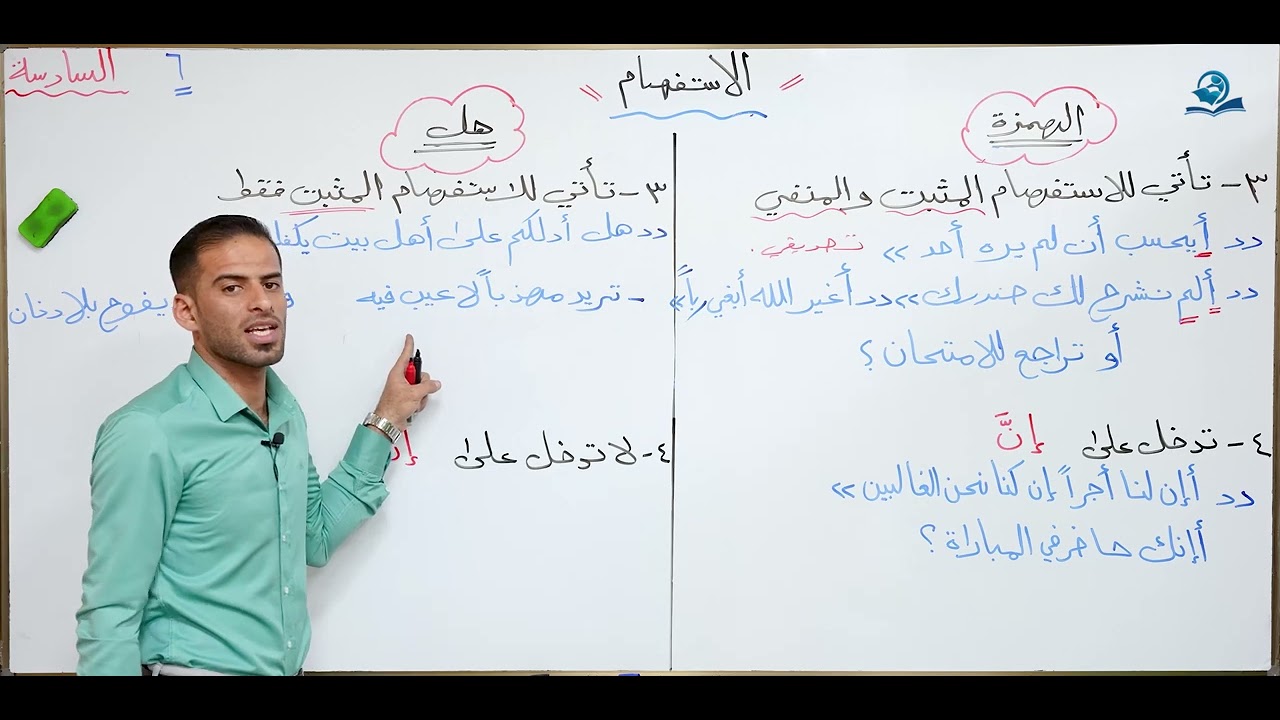 السادسة
٦
" الاستفهام "
الهمزة
٣- تأتي للاستفهام المثبت والمنفي
«أيحسب أن لم يره أحد» تصديقي.
«ألم نشرح لك صدرك» «أغير الله أبغي رباً»
أو تراجع للامتحان؟
٤- تدخل على إنَّ
«أإن لنا أجراً إن كنا نحن الغالبين»
أإنك حاضر في المباراة؟
هل
٣- تأتي للاستفهام المثبت فقط
«هل أدلكم على أهل بيت
- تريد مهذباً لا عيب فيه يفوح بلا دخان
٤- لا تدخل على